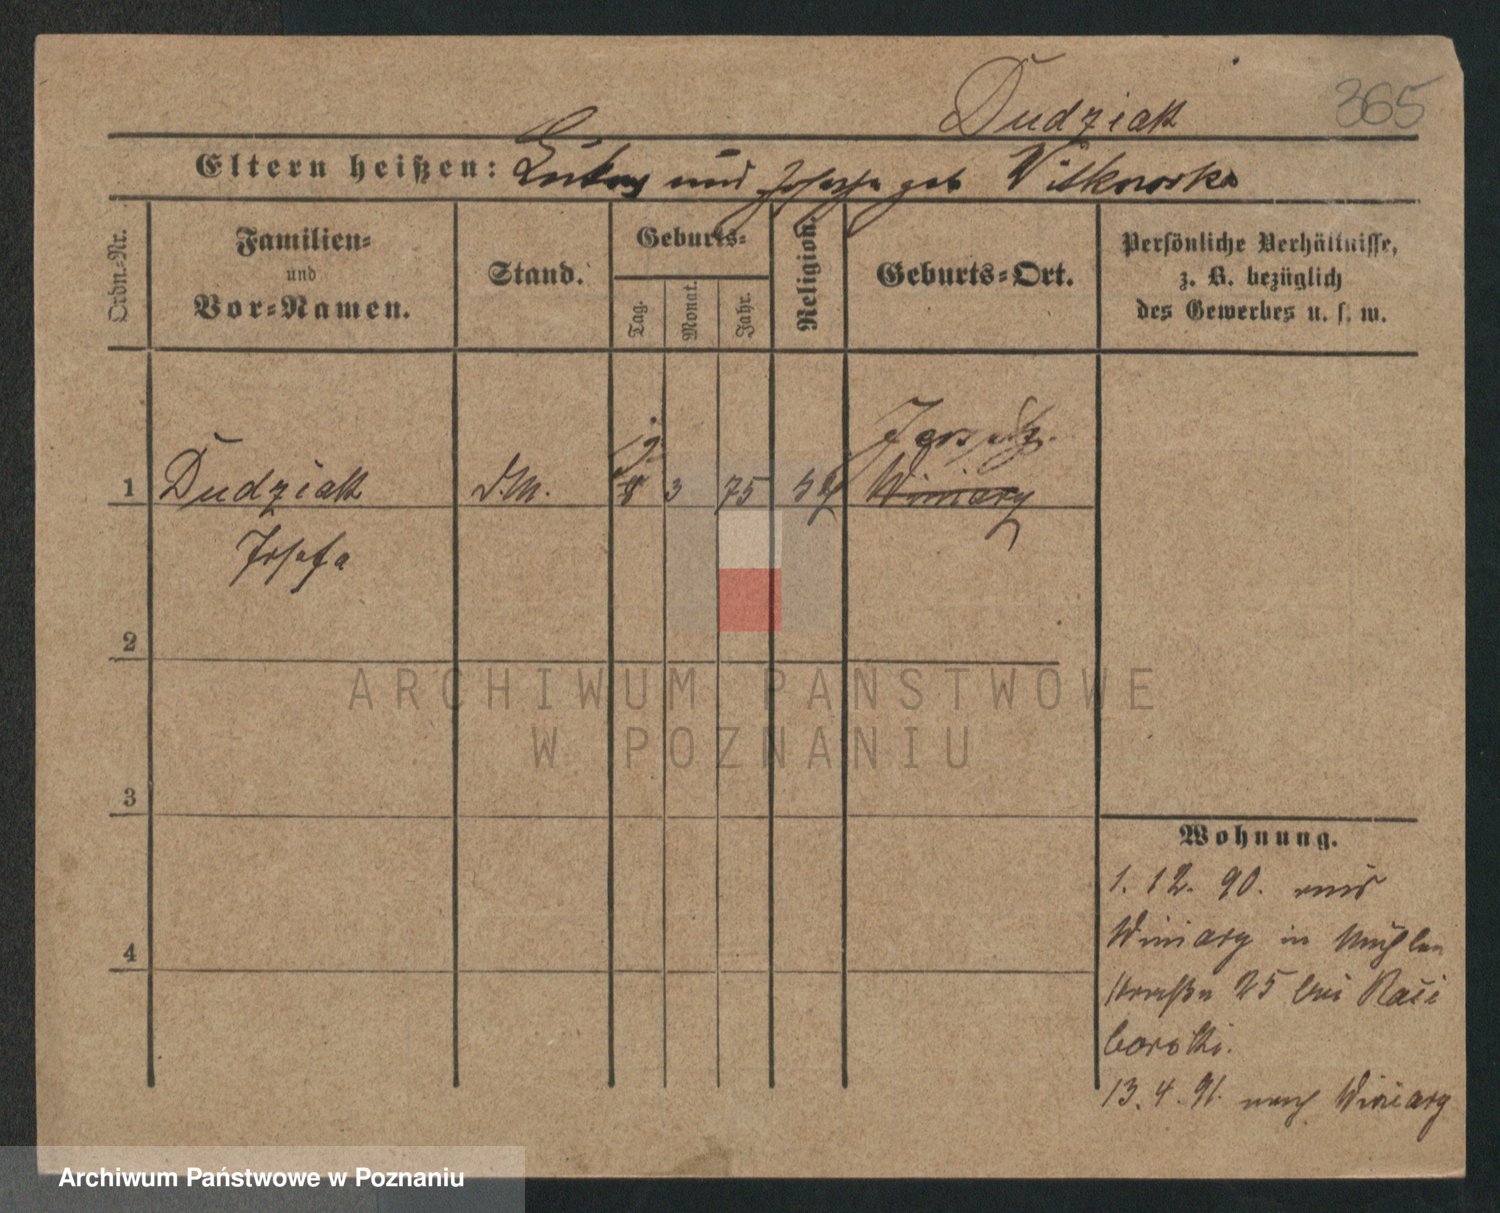 Dudziak
365
Eltern heißen: Lukas und Josepha geb Witkowska
Ordn.-Nr.
Familien-
und
Vor-Namen.
Stand.
Geburts-
Tag.
Monat.
Jahr.
Religion.
Geburts-Ort.
Persönliche Verhältnisse,
z. B. bezüglich
des Gewerbes u. s. w.
1
Dudziak
D.M.
9.
8
3
75
kath
Jersitz.
Winiary
Josefa
2
ARCHIWUM PAŃSTWOWE
W POZNANIU
3
4
Wohnung.
1. 12. 90. aus
Winiary in Mühlen
straße 25 bei Raci
borski.
13. 4. 91. nach Winiary
Archiwum Państwowe w Poznaniu